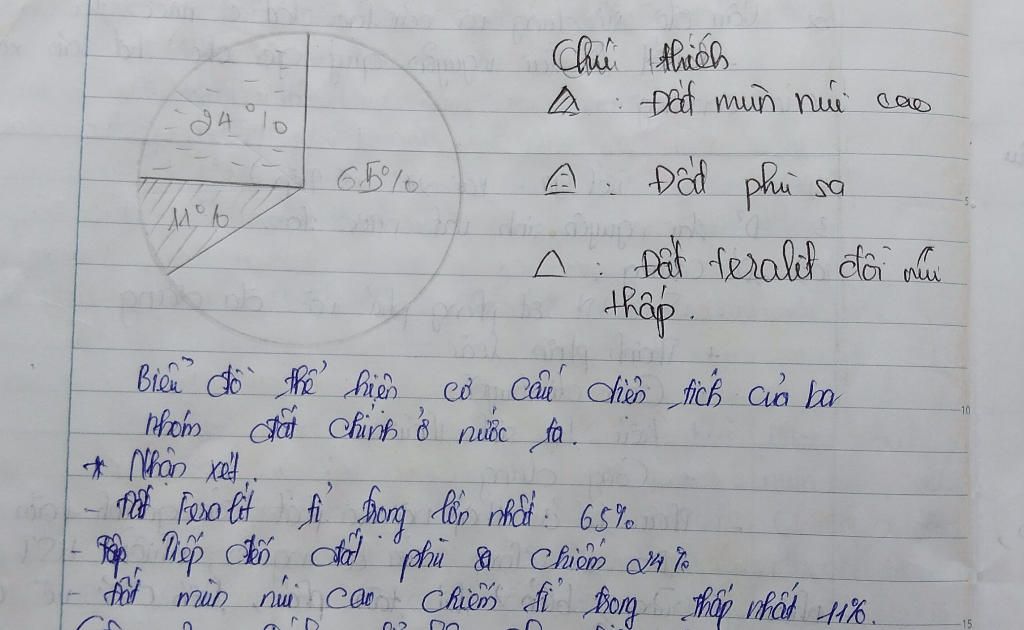 24%
65%
11%
Chú thích
: Đất mùn núi cao
: Đất phù sa
: Đất feralit đồi núi
thấp.
Biểu đồ thể hiện cơ cấu diện tích của ba
nhóm đất chính ở nước ta.
* Nhận xét.
- Đất Feralit tỉ trọng lớn nhất: 65%
- Tiếp đến đất phù sa chiếm 24%
- Đất mùn núi cao chiếm tỉ trọng thấp nhất 11%.